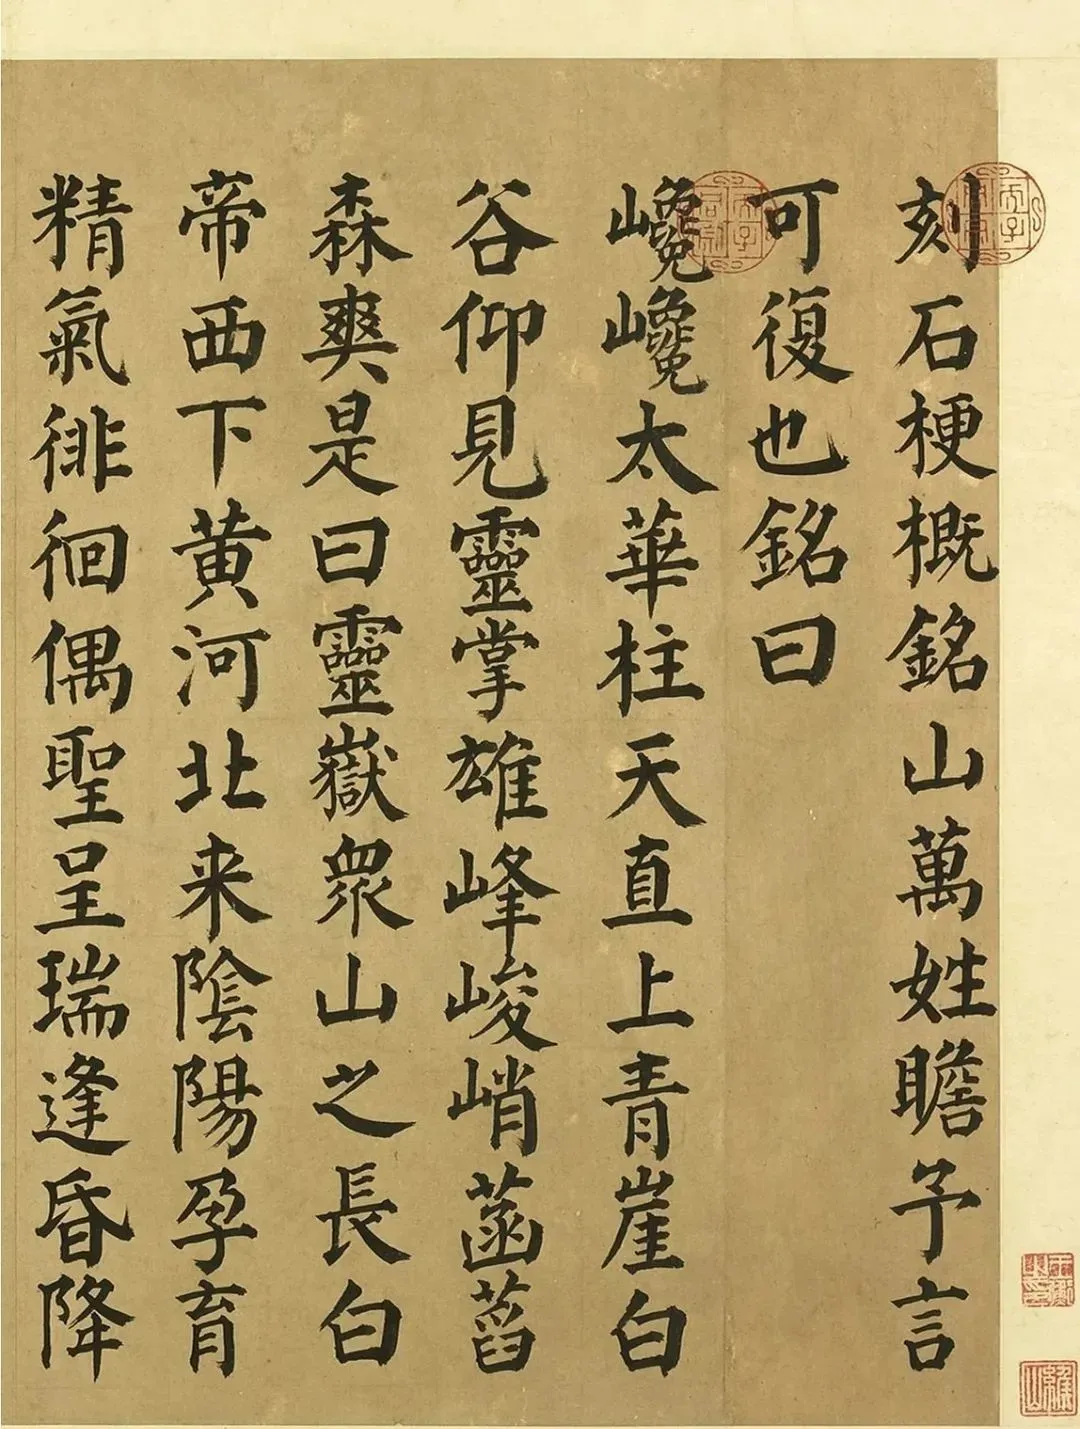 刻石梗概銘山萬姓瞻予言
可復也銘曰
巉巉太華柱天直上青崖白
谷仰見靈掌雄峰峻峭菡萏
森爽是曰靈嶽衆山之長白
帝西下黄河北来陰陽孕育
精氣徘徊偶聖呈瑞逢昏降